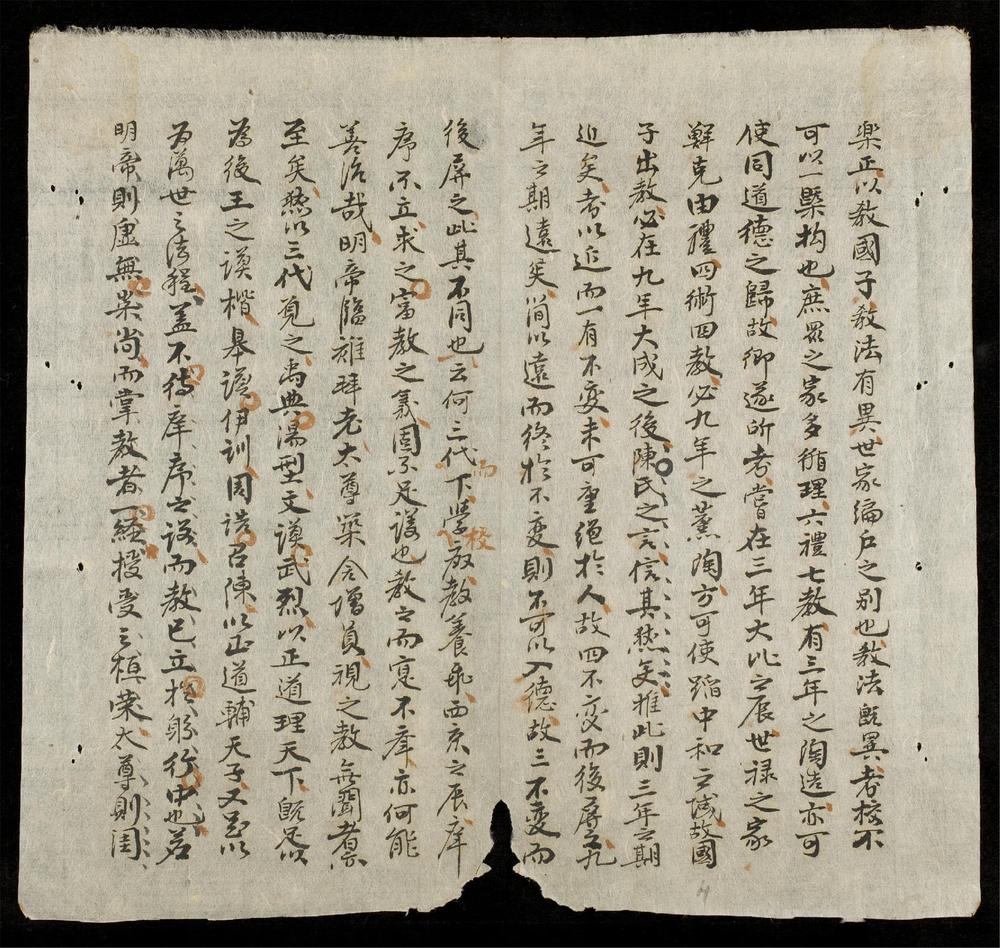 樂正以教國子教法有異世家編戶之别也教法既異者校不
可以一槩拘也庶民之家多循理六禮七教有三年之陶造亦可
使同道德之歸故鄉遂所考嘗在三年大比之辰世禄之家
鮮克由禮四術四教必九年之薰陶方可使蹈中和之誠故國
子出教必在九年大成之後陳民之言信其然矣推此則三年之期
近矣考以近而一有不变未可堊絕於人故四不变而後屏之九
年之期遠矣簡以遠而終於不变則不可以入德故三不变而
後屏之此其不同也云何三代而下學校教養乖西京之辰庠
序不立求之富教之義固不足議也教之而寔不庠亦何能
善治哉明帝臨雍拜老太尊築舍增員視之教無聞者
至矣然以三代視之禹典湯型文謨武烈以正道理天下既足以
為後王之謨楷皋謨伊訓周誥召陳以正道輔天子又足以
为萬世之法程盖不待庠序之設而教已立於躬行中也若
明帝則虛無崇尚而掌教者一経授受之桓荣太尊則閨